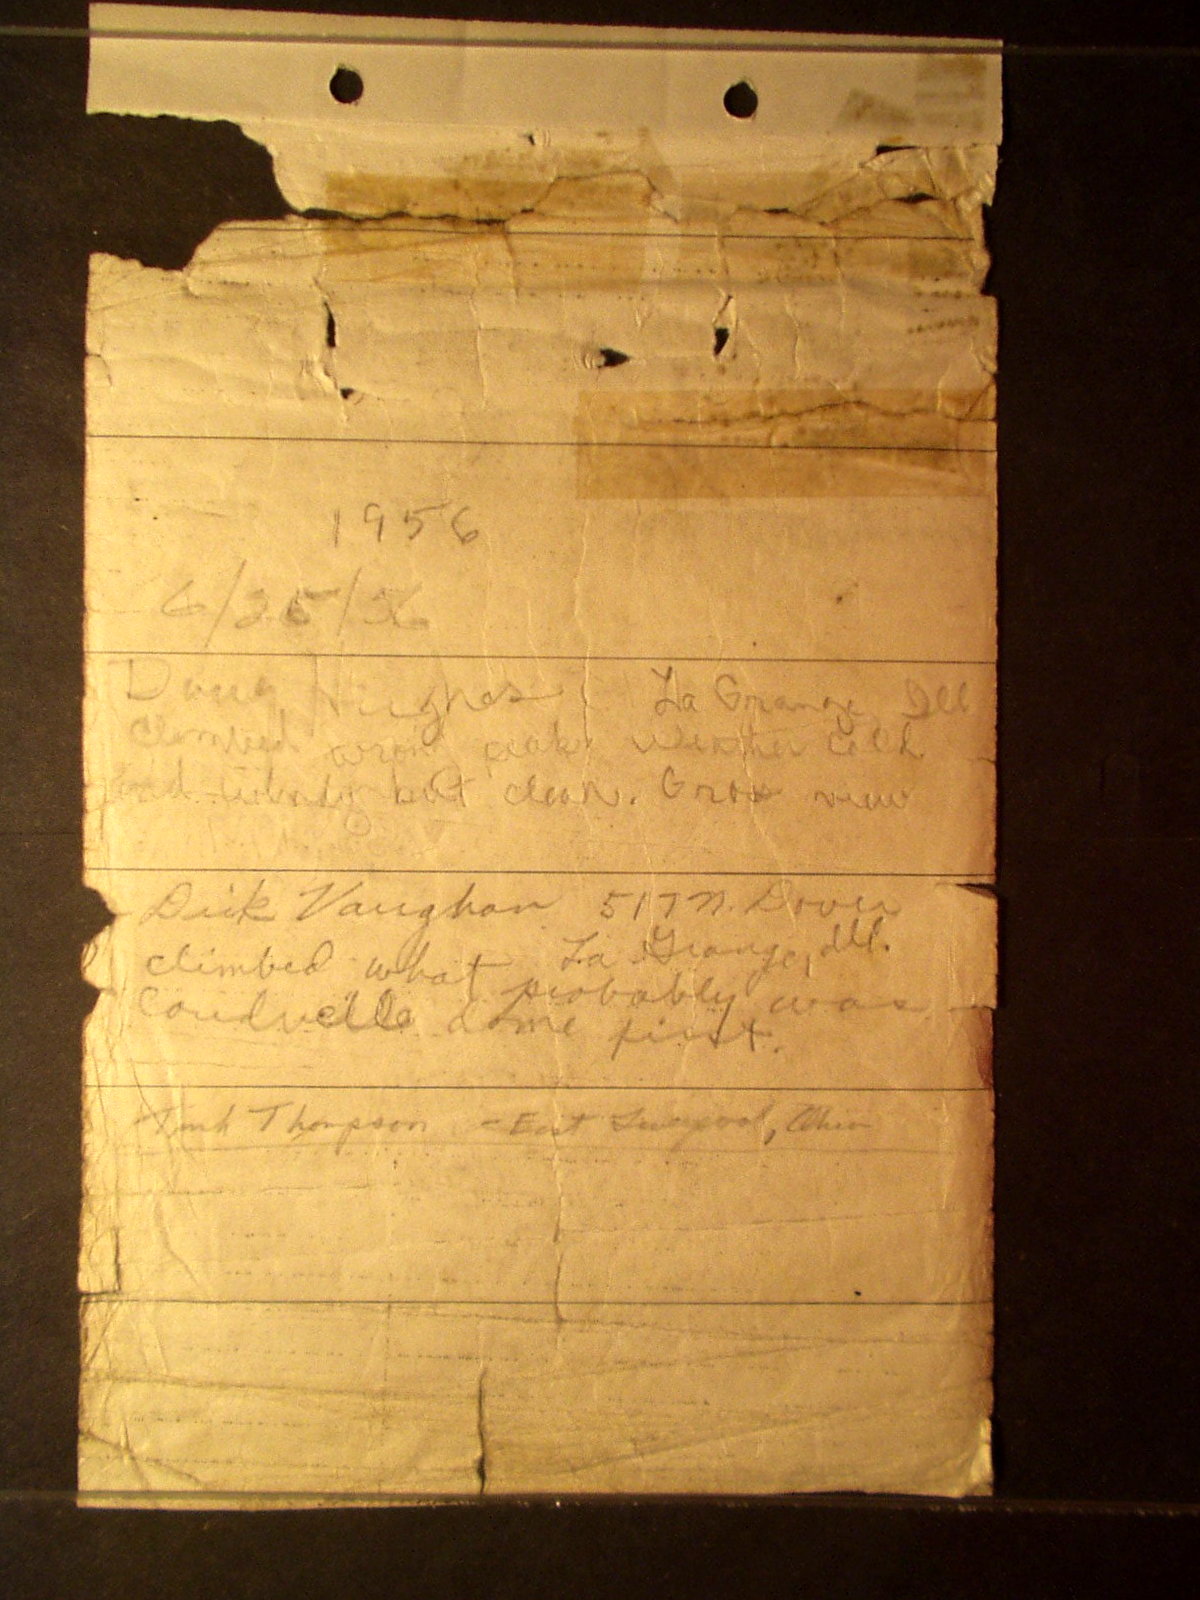 1956
6/25/56
Doug Hughes La Grange, Ill
Climbed wrong peak. Weather cold
and but clear. Good view
Dick Vaughan 517 N. Dover
La Grange, Ill.
climbed what probably was
dome first.
Thompson - East Liverpool, Ohio